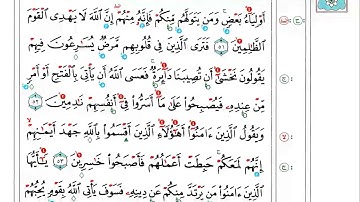 أَوْلِيَاءُ بَعْضٍ وَمَن يَتَوَلَّهُم مِّنكُمْ فَإِنَّهُ مِنْهُمْ إِنَّ اللَّهَ لَا يَهْدِى الْقَوْمَ
الظَّالِمِينَ ٥١ فَتَرَى الَّذِينَ فِى قُلُوبِهِم مَّرَضٌ يُسَارِعُونَ فِيهِمْ
يَقُولُونَ نَخْشَىٰ أَن تُصِيبَنَا دَائِرَةٌ فَعَسَى اللَّهُ أَن يَأْتِىَ بِالْفَتْحِ أَوْ أَمْرٍ
مِّنْ عِندِهِ فَيُصْبِحُوا عَلَىٰ مَا أَسَرُّوا فِى أَنفُسِهِمْ نَادِمِينَ ٥٢
وَيَقُولُ الَّذِينَ ءَامَنُوا أَهَٰؤُلَاءِ الَّذِينَ أَقْسَمُوا بِاللَّهِ جَهْدَ أَيْمَانِهِمْ
إِنَّهُمْ لَمَعَكُمْ حَبِطَتْ أَعْمَالُهُمْ فَأَصْبَحُوا خَاسِرِينَ ٥٣ يَا أَيُّهَا
الَّذِينَ ءَامَنُوا مَن يَرْتَدَّ مِنكُمْ عَن دِينِهِ فَسَوْفَ يَأْتِى اللَّهُ بِقَوْمٍ يُحِبُّهُمْ